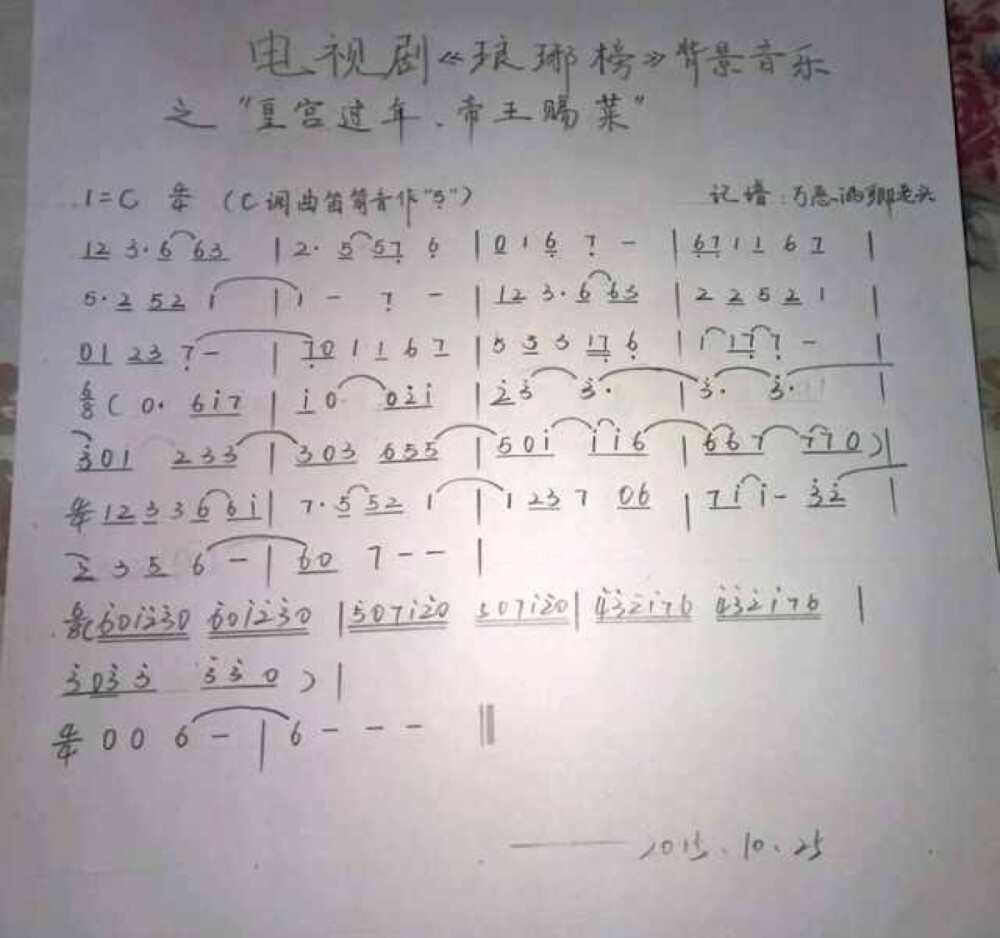 电视剧《琅琊榜》背景音乐
之“皇宫过年、帝王赐菜”
1=C 4/4 (C调曲笛筒音作“5̣”) 记谱:万 酒乡老头
12 3·6 63 | 2· 5 57 6 | 0 1 6 7 - | 67 1 1 6 7 |
5·2 52 1 | 1 - 7 - | 12 3·6 63 | 2 2 5 2 1 |
01 23 7 - | 70 1 1 6 7 | 5 3 3 17 6 | 1 17 7 - |
6/8 ( 0· 6i7 | i0 02̇i | 2̇3̇ 3̇· | 3̇· 3̇· |
3̇01 233 | 303 655 | 50i ii6 | 667 770 ) |
4/4 12 3 3 6 6i | 7·5 52 1 | 1 23 7 06 | 7i i - 3̇2̇ |
2̇ 3 5 6 - | 60 7 - - |
6/8 ( 601̇2̇3̇0 601̇2̇3̇0 | 5071̇2̇0 5071̇2̇0 | 4̇3̇2̇1̇76 4̇3̇2̇1̇76 |
3̇03̇ 3̇ 3̇3̇0 ) |
4/4 0 0 6 - | 6 - - - ‖
—— 2015.10.25